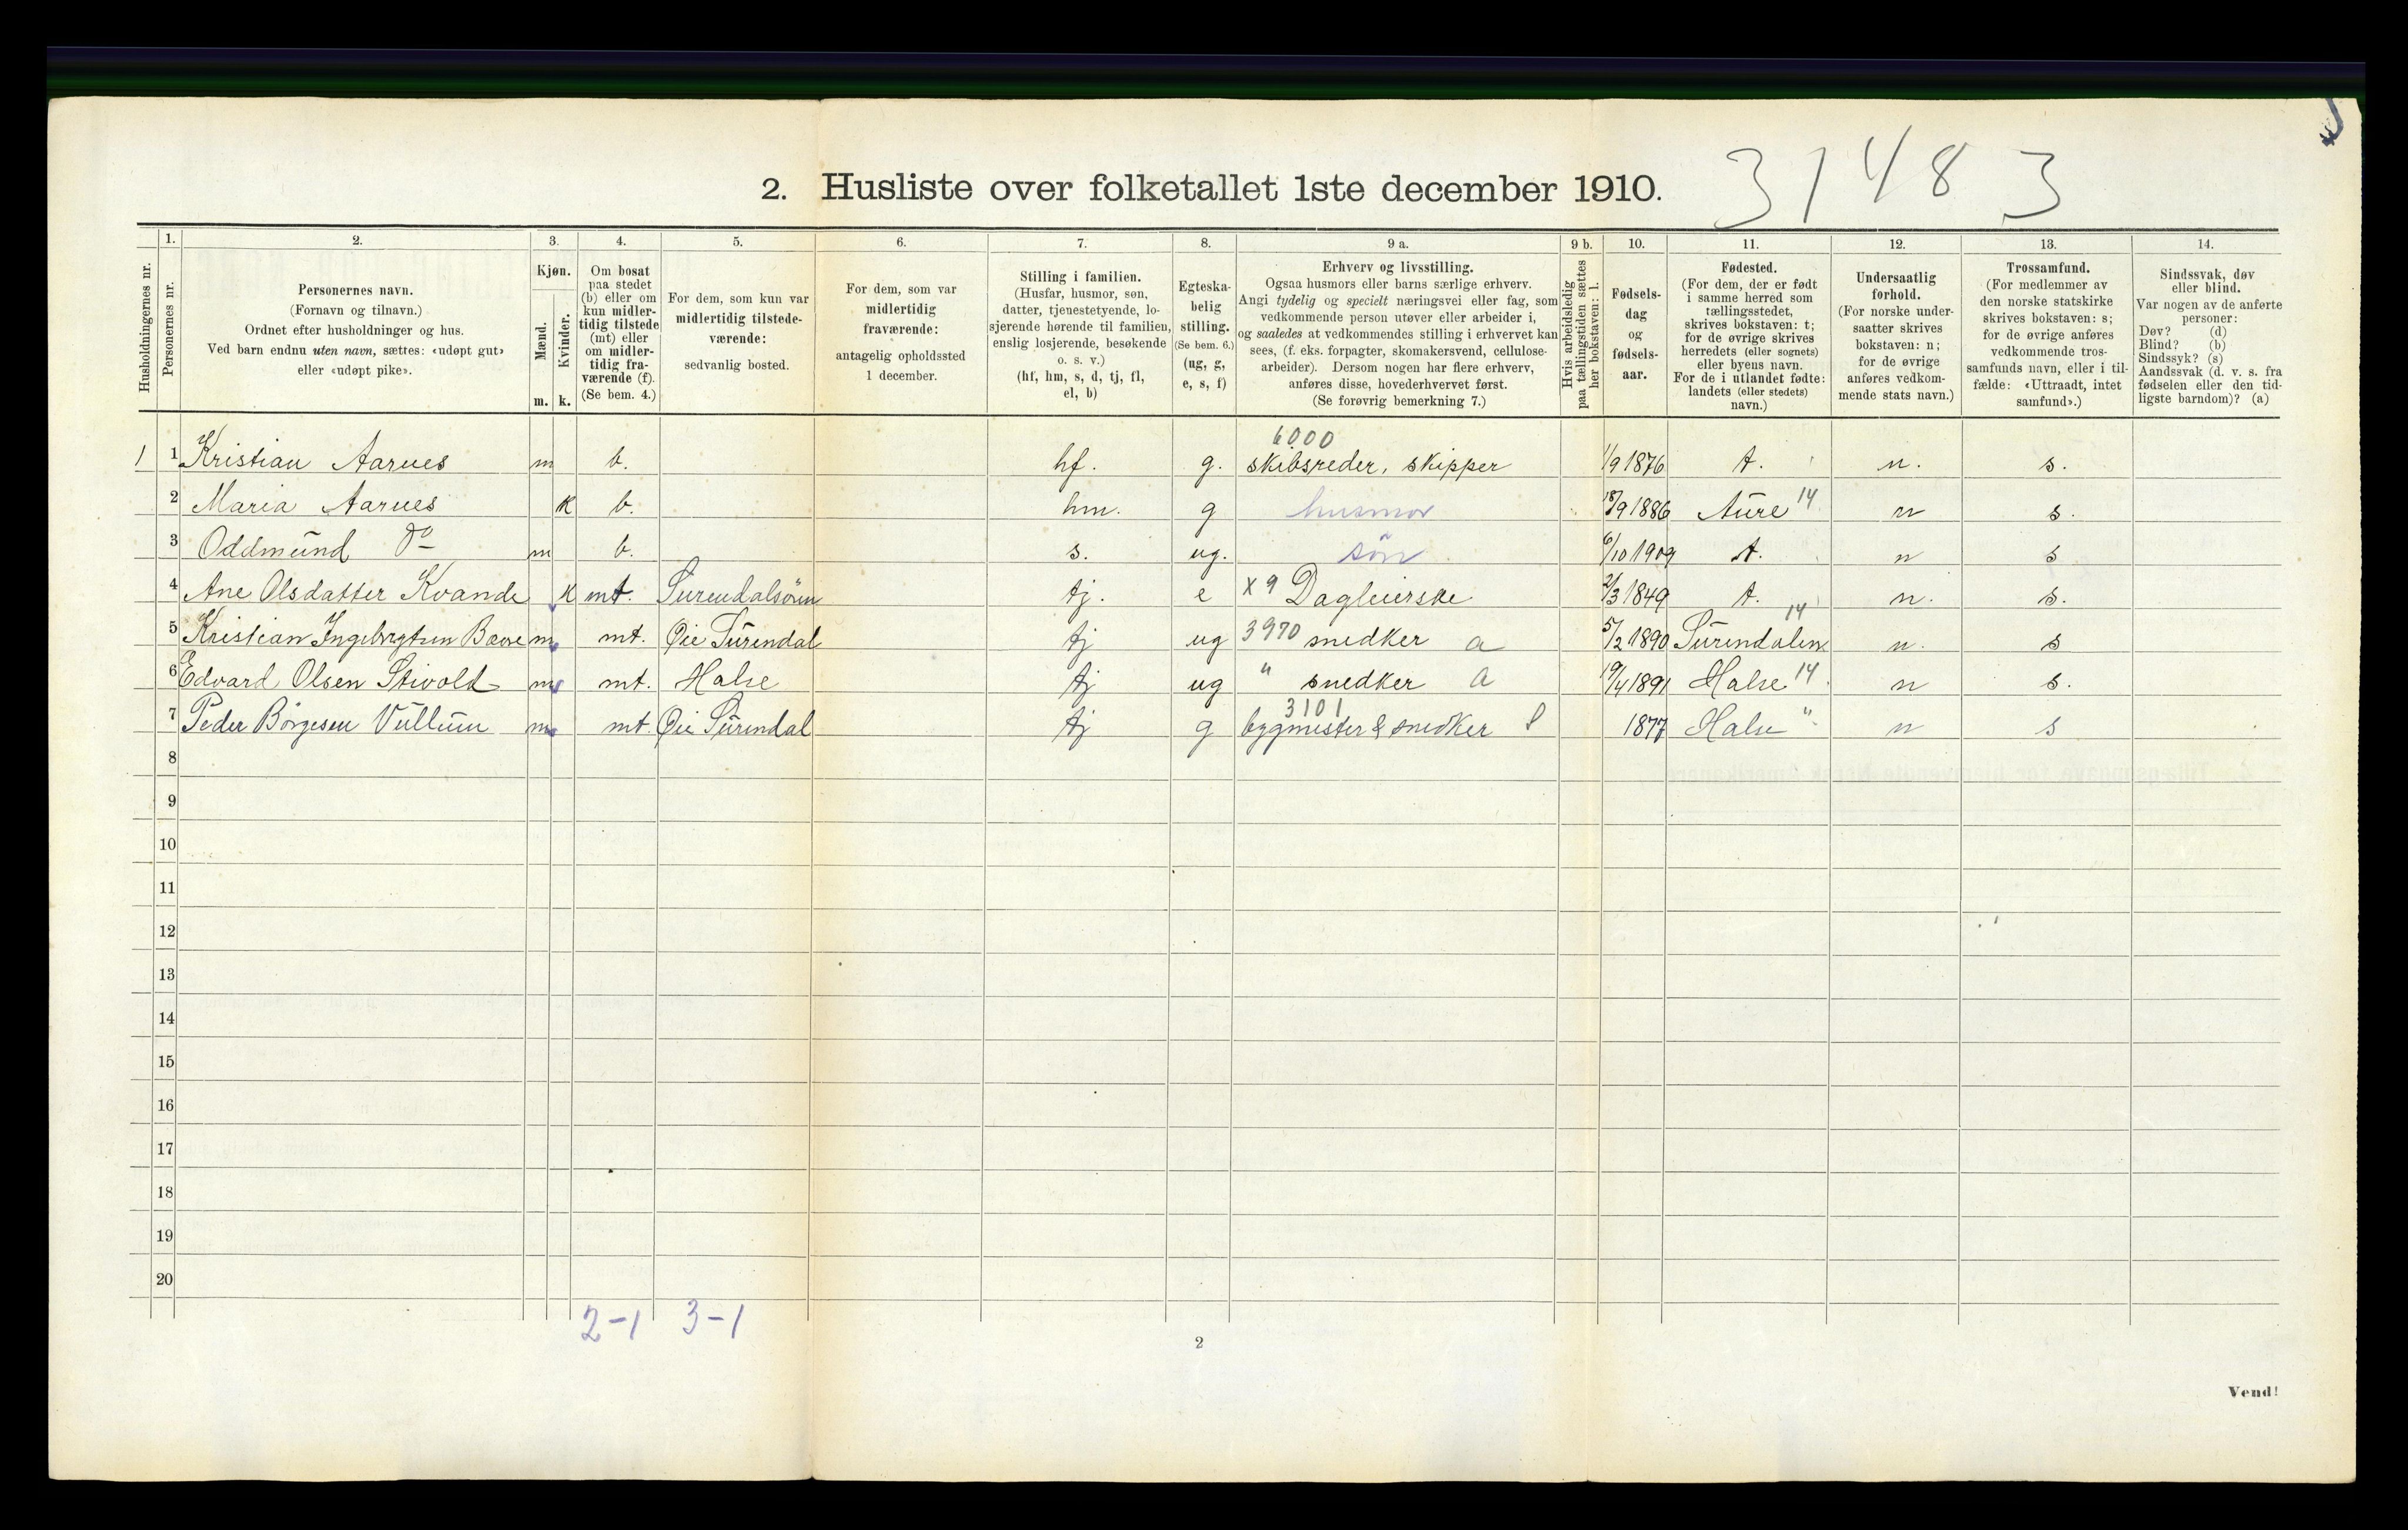 31483
2. Husliste over folketallet 1ste december 1910.
Husholdningernes nr.
1. Personernes nr.
2. Personernes navn.
(Fornavn og tilnavn.)
Ordnet efter husholdninger og hus.
Ved barn endnu uten navn, sættes: «udøpt gut»
eller «udøpt pike».
3. Kjøn.
Mænd. m.
Kvinder. k.
4. Om bosat
paa stedet
(b) eller om
kun midler-
tidig tilstede
(mt) eller
om midler-
tidig fra-
værende (f).
(Se bem. 4.)
5. For dem, som kun var
midlertidig tilstede-
værende:
sedvanlig bosted.
6. For dem, som var
midlertidig
fraværende:
antagelig opholdssted
1 december.
7. Stilling i familien.
(Husfar, husmor, søn,
datter, tjenestetyende, lo-
sjerende hørende til familien,
enslig losjerende, besøkende
o. s. v.)
(hf, hm, s, d, tj, fl,
el, b)
8. Egteska-
belig
stilling.
(Se bem. 6.)
(ug, g,
e, s, f)
9 a. Erhverv og livsstilling.
Ogsaa husmors eller barns særlige erhverv.
Angi tydelig og specielt næringsvei eller fag, som
vedkommende person utøver eller arbeider i,
og saaledes at vedkommendes stilling i erhvervet kan
sees, (f. eks. forpagter, skomakersvend, cellulose-
arbeider). Dersom nogen har flere erhverv,
anføres disse, hovederhvervet først.
(Se forøvrig bemerkning 7.)
9 b. Hvis arbeidsledig
paa tællingstiden sættes
her bokstaven: l.
10. Fødsels-
dag
og
fødsels-
aar.
11. Fødested.
(For dem, der er født
i samme herred som
tællingsstedet,
skrives bokstaven: t;
for de øvrige skrives
herredets (eller sognets)
eller byens navn.
For de i utlandet fødte:
landets (eller stedets)
navn.)
12. Undersaatlig
forhold.
(For norske under-
saatter skrives
bokstaven: n;
for de øvrige
anføres vedkom-
mende stats navn.)
13. Trossamfund.
(For medlemmer av
den norske statskirke
skrives bokstaven: s;
for de øvrige anføres
vedkommende tros-
samfunds navn, eller i til-
fælde: «Uttraadt, intet
samfund».)
14. Sindssvak, døv
eller blind.
Var nogen av de anførte
personer:
Døv? (d)
Blind? (b)
Sindssyk? (s)
Aandssvak (d. v. s. fra
fødselen eller den tid-
ligste barndom)? (a)
6000
1 1 Kristian Aarnes m b. hf. g. skibsreder, skipper 1/9 1876 t. n. s.
2 Maria Aarnes k b. hm. g husmor 18/9 1886 Aure 14 n s.
3 Oddmund do m b. s. ug. søn 6/10 1909 t. n s
4 Ane Olsdatter Kvande k mt. Surendalsören tj. e x9 Dagleierske 2/3 1849 t. n. s.
5 Kristian Ingebrgtsen Bæve m mt. Øie Surendal tj ug 3970 snedker a 5/2 1890 Surendalen 14 n. s
6 Edvard Olsen Stivold m mt. Halse tj ug " snedker a 19/4 1891 Halse 14 n s.
3101
7 Peder Börgesen Vullum m mt. Øie Surendal tj g bygmester & snedker 1877 Halse " n s
8
9
10
11
12
13
14
15
16
17
18
19
20
2-1 3-1
2
Vend!